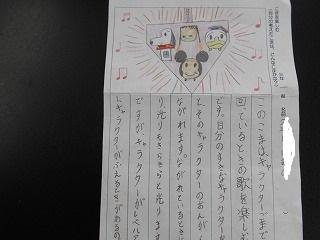 こまを楽しむ
このこまは、キャラクターごまで
回っているときの歌を楽しむ
です。自分のすきなキャラクターが
とそのキャラクターのおんが
ながれます。ながれているときに
り、光りもきらきらと光ります
ですが、キャラクターがレベルア
、キャラクターがふえるときがあるの